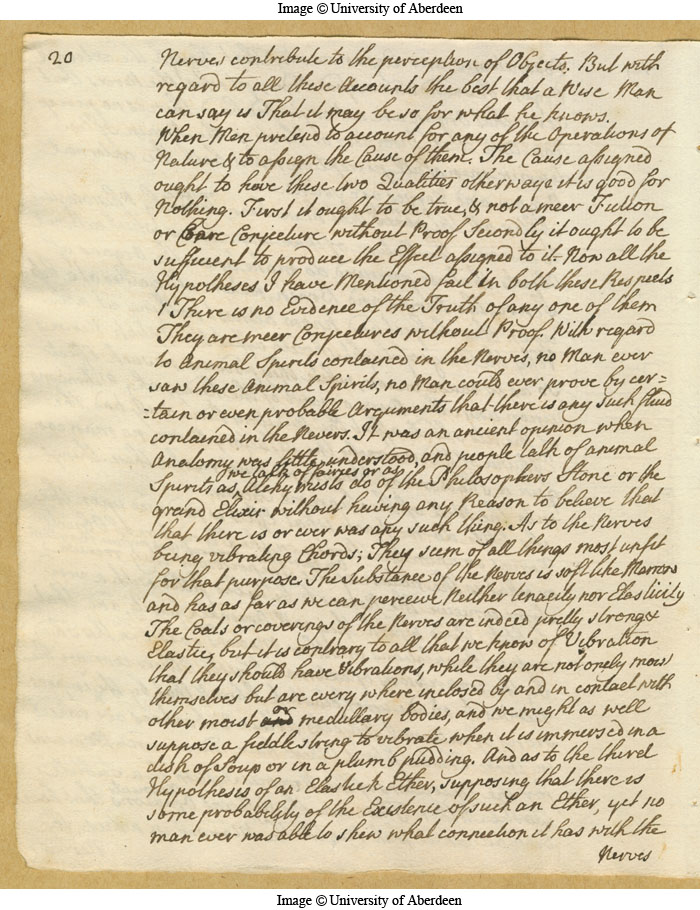 Image © University of Aberdeen
20
Nerves contribute to the perception of Objects. But with
regard to all these Accounts the best that a Wise Man
can say is That it may be so for what he knows.
When Men pretend to account for any of the Operations of
Nature & to assign the Cause of them. The Cause assigned
ought to have these two Qualities otherways it is good for
Nothing. First it ought to be true, & not a meer Fiction
or bare Conjecture without Proof Secondly it ought to be
sufficient to produce the Effect assigned to it. Now all the
Hypotheses I have Mentioned fail in both these Respects
1 There is no Evidence of the Truth of any one of them
They are meer Conjectures without Proof. With regard
to Animal Spirits contained in the Nerves, no Man ever
saw these Animal Spirits, no Man could ever prove by cer=
=tain or even probable Arguments that there is any such fluid
contained in the Nevers. It was an ancient opinion when
Anatomy was little understood, and people talk of animal
we talk of fairies or as
Spirits as Alchymists do of the Philosophers Stone or the
grand Elixir without having any Reason to believe that
that there is or ever was any such thing. As to the Nerves
being vibrating Chords; They seem of all things most unfit
for that purpose. The Substance of the Nerves is soft like Marrow
and has as far as we can perceive Neither tenacity nor Elasticity
The Coats or coverings of the Nerves are indeed pretty strong &
Elastic, but it is contrary to all that we know of Vibration
that they should have Vibrations, while they are not onely moist
themselves but are every where inclosed by and in contact with
or
other moist and medullary bodies, and we might as well
suppose a fiddle string to vibrate when it is immersed in a
dish of Soup or in a plumb pudding. And as to the third
Hypothesis of an Elastick Ether, supposing that there is
some probability of the Existence of such an Ether, yet no
man ever was able to shew what connection it has with the
Nerves
Image © University of Aberdeen